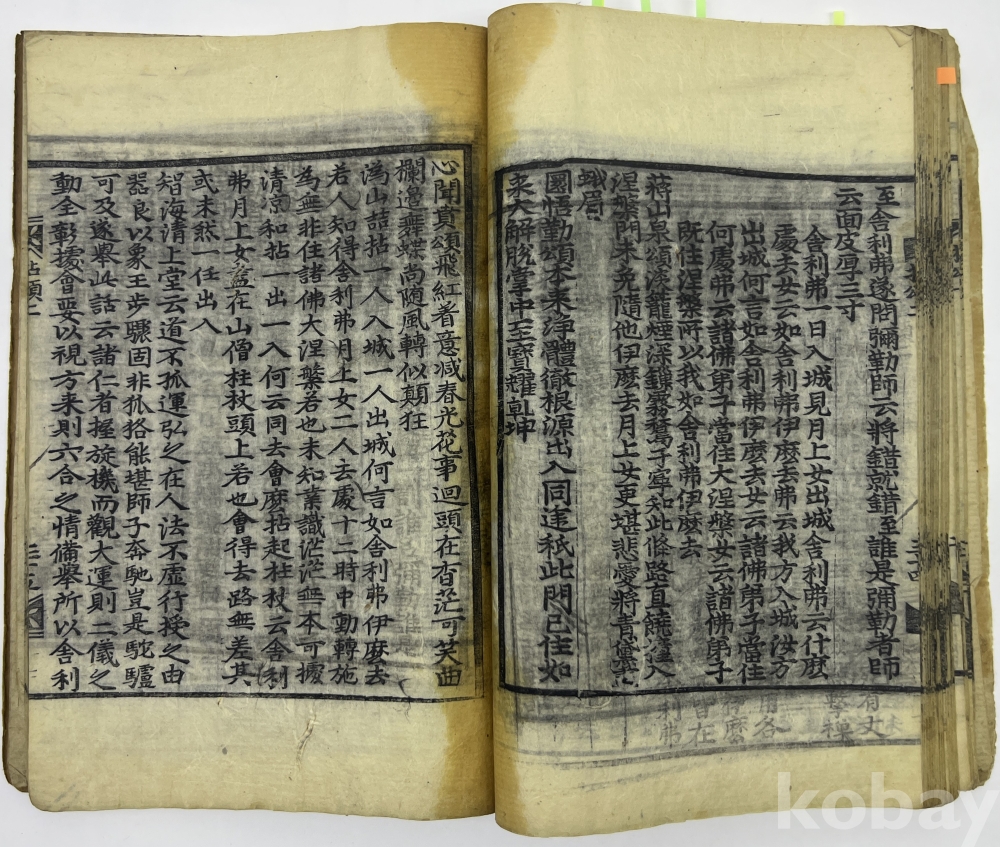 至舍利弗遂問彌勒師云將錯就錯至誰是彌勒者師
云面皮厚三寸
舍利弗一日入城見月上女出城舍利弗云什麽
處去女云如舍利弗伊麽去弗云我方入城汝方
出城何言如舍利弗伊麽去女云諸佛弟子當住
何處弗云諸佛弟子當住大涅槃女云諸佛弟子
既住涅槃所以我如舍利弗伊麽去
蔣山泉頌淡籠煙深鏁霧鶖子寧知此條路直饒人
涅槃門未免隨他伊麽去月上女更堪悲愛將青黛
蛾眉
圜悟勤頌本来淨體徹根源出入同途秖此門已住如
来大解脫掌中至寶耀乾坤
心聞賁頌飛紅着意减春光花事迴頭在杳茫可笑曲
欄邊舞蝶尚随風轉似顛狂
潙山喆拈一人入城一人出城何言如舍利弗伊麽去
若人知得舍利弗月上女二人去處十二時中動轉施
為無非住諸佛大涅槃若也未知業識茫茫無本可據
清凉和拈一出一入何云同去會麽拈起柱杖云舍利
弗月上女盡在山僧柱杖頭上若也會得去路無差其
或未然一任出入
智海清上堂云道不孤運弘之在人法不虛行授之由
器良以象王步驟固非狐狢能堪師子奔馳豈是駝驢
可及遂舉此話云諸仁者握旋機而觀大運則二儀之
動全彰據會要以視方来則六合之情備舉所以舍利
kobay